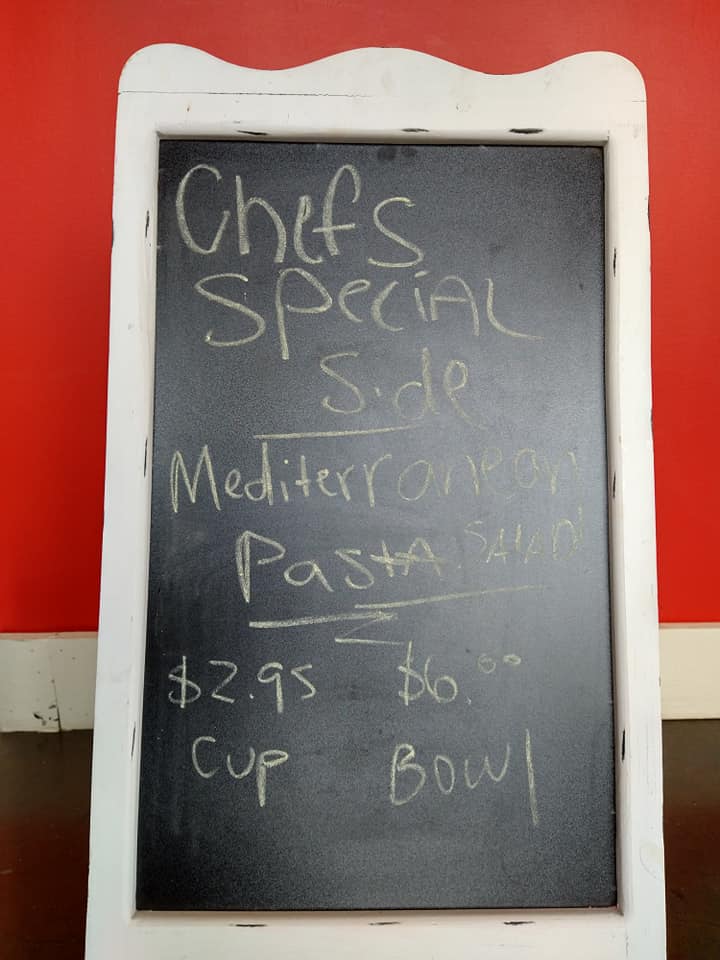 Chefs
Special
Side
Mediterranean
Pasta Salad
$2.95 $6.00
Cup Bowl